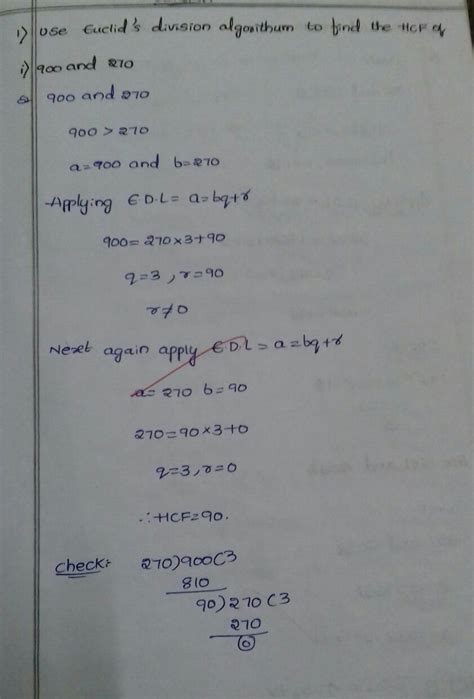 1) Use Euclid's division algorithum to find the HCF of
i) 900 and 270
900 and 270
900 > 270
a=900 and b=270
Applying E.D.L= a=bq+r
900=270×3+90
q=3, r=90
r≠0
Next again apply E.D.L = a=bq+r
a= 270 b=90
270=90×3+0
q=3, r=0
∴HCF=90.
check:- 270)900(3
810
90)270(3
270
0